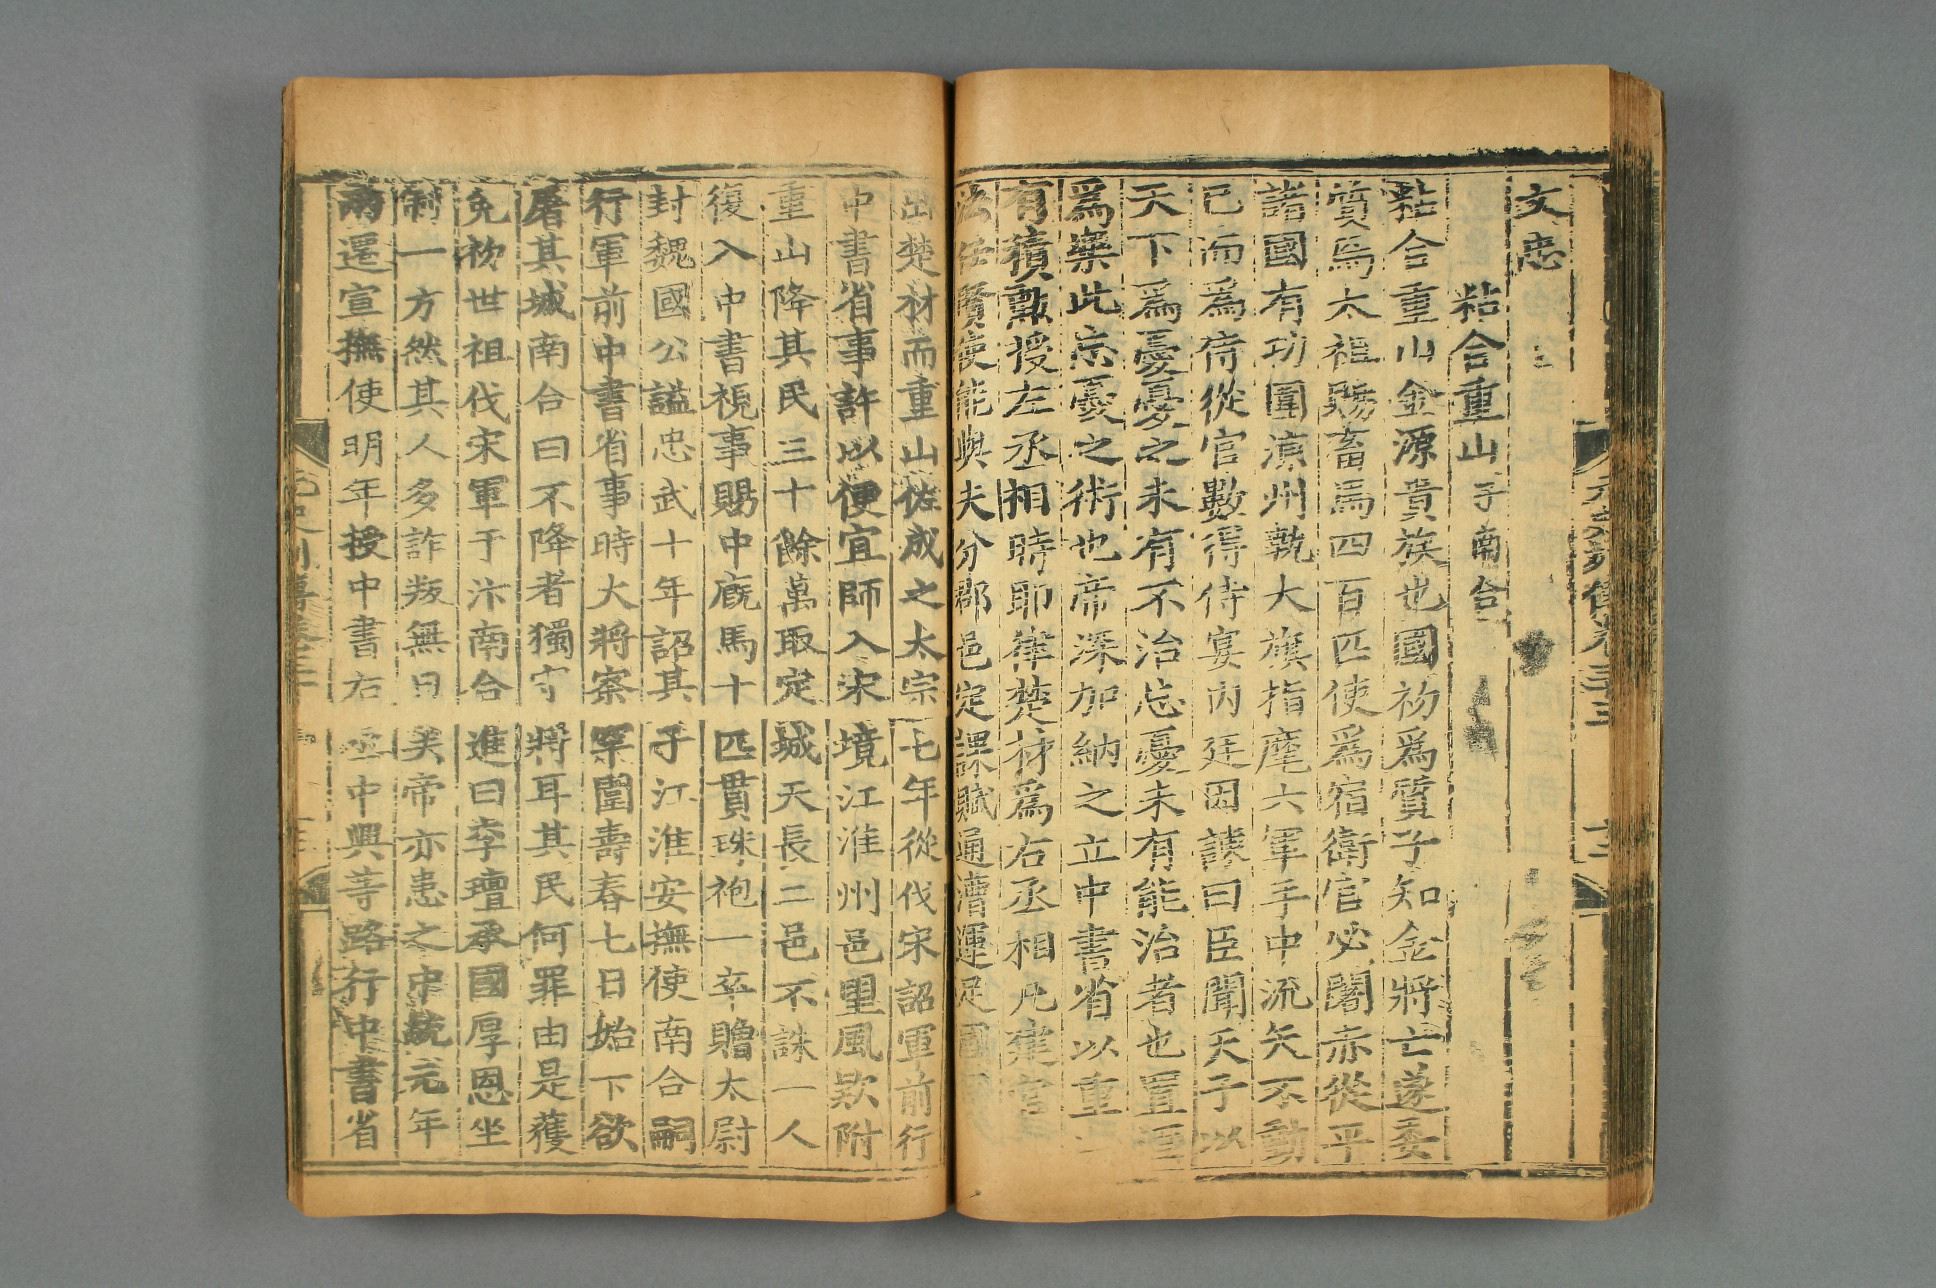 文忠
粘合重山 子南合
粘合重山金源貴族也國初為質子知金將亡遂委
質焉太祖賜畜馬四百匹使為宿衛官必闍赤從平
諸國有功圍涼州執大旗指麾六軍手中流矢不動
已而為侍從官數得侍宴內廷因諫曰臣聞天子以
天下為憂憂之未有不治忘憂未有能治者也置酒
為樂此忘憂之術也帝深加納之立中書省以重
有積勳授左丞相時耶律楚材為右丞相凡建官
法任賢使能與夫分郡邑定課賦通漕運足國
出楚材而重山佐成之太宗七年從伐宋詔軍前行
中書省事許以便宜師入宋境江淮州邑望風欵附
重山降其民三十餘萬取定城天長二邑不誅一人
復入中書視事賜中廐馬十匹貫珠袍一卒贈太尉
封魏國公謚忠武十年詔其子江淮安撫使南合嗣
行軍前中書省事時大將察罕圍壽春七日始下欲
屠其城南合曰不降者獨守將耳其民何罪由是獲
免初世祖伐宋軍于汴南合進曰李璮承國厚恩坐
制一方然其人多詐叛無日矣帝亦患之中統元年
兩遷宣撫使明年授中書右丞中興等路行中書省